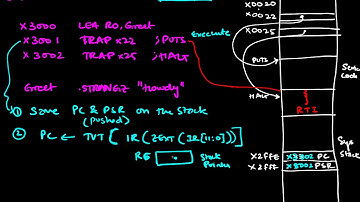 x0020
x3000 LEA R0, Greet
x0022
x3001 TRAP x22 ; PUTS
Execute
x0025
x3002 TRAP x25 ; HALT
PUTS
Greet .STRINGZ "Howdy"
Code
HALT
① Save PC & PSR on the stack
RTI
(pushed)
② PC ← TVT [ IR (ZEXT (IR[11:0])) ]
Sys
Stack
R6
Stack
Pointer
x2FFE
PC
x2FFF
PSR